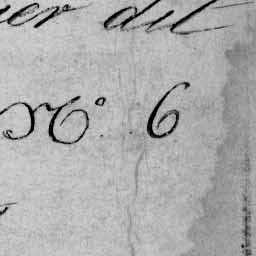 er dit
N° 6